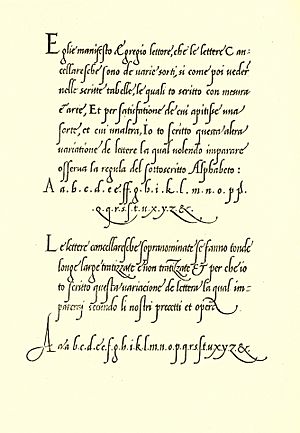 Eglie manifesto Egregio lettore, che le lettere Can-
cellaresche sono de varie sorti, si come poi veder
nelle scritte tabelle, le quali to scritto con mesura
e arte, Et per satisfatione de cui apitisse una
sorte, et cui unaltra, Io to scritto questa altra
variatione de lettere la qual volendo imparare
osserva la regula del sottoscritto Alphabeto:
A a.b.c.d.e.e.ff.g.b.i.k.l.m.n.o.p.ſ.
.q.q.r.s.ſt.u.x.y.z.&.
Le lettere cancellaresche sopranominate se fanno tonde
longe large tratizzate e non tratizzate ET per che io
to scritto questa variacione de lettera la qual im-
parerai secundo li nostri precetti et opera
A a.b.c.d.e.e.f.g.h.i.k.l.m.n.o.p.q.r.s.ſt.u.x.y.z.&.